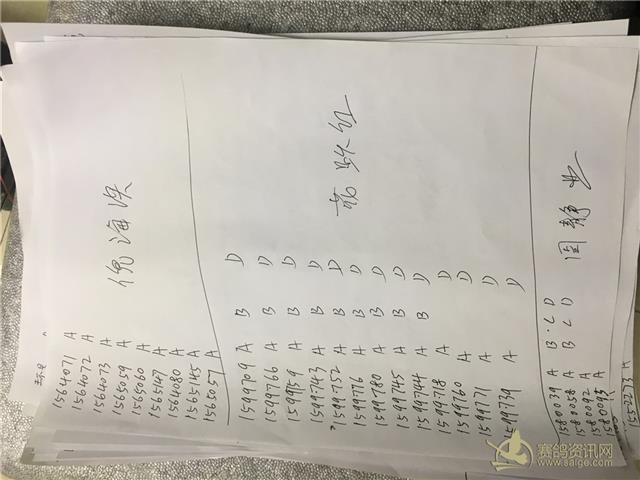 1564071 A
1564072 A
1564073 A
1565059 A
1565060 A
1565147 A
1564080 A
1565145 A
1565057 A
倪海滨
1599709 A B D
1599766 A B D
1599759 A B D
1599743 A B D
1599752 A B D
1599776 A B D
1599780 A B D
1599745 A B D
1599744 A B D
1598718 A D
1599760 A D
1599771 A D
1599739 A D
1580039 A B·C D
1580058 A B C D
1580092 A
1580095 A
周静
1552273 A
赛鸽资讯网
www.saige.com